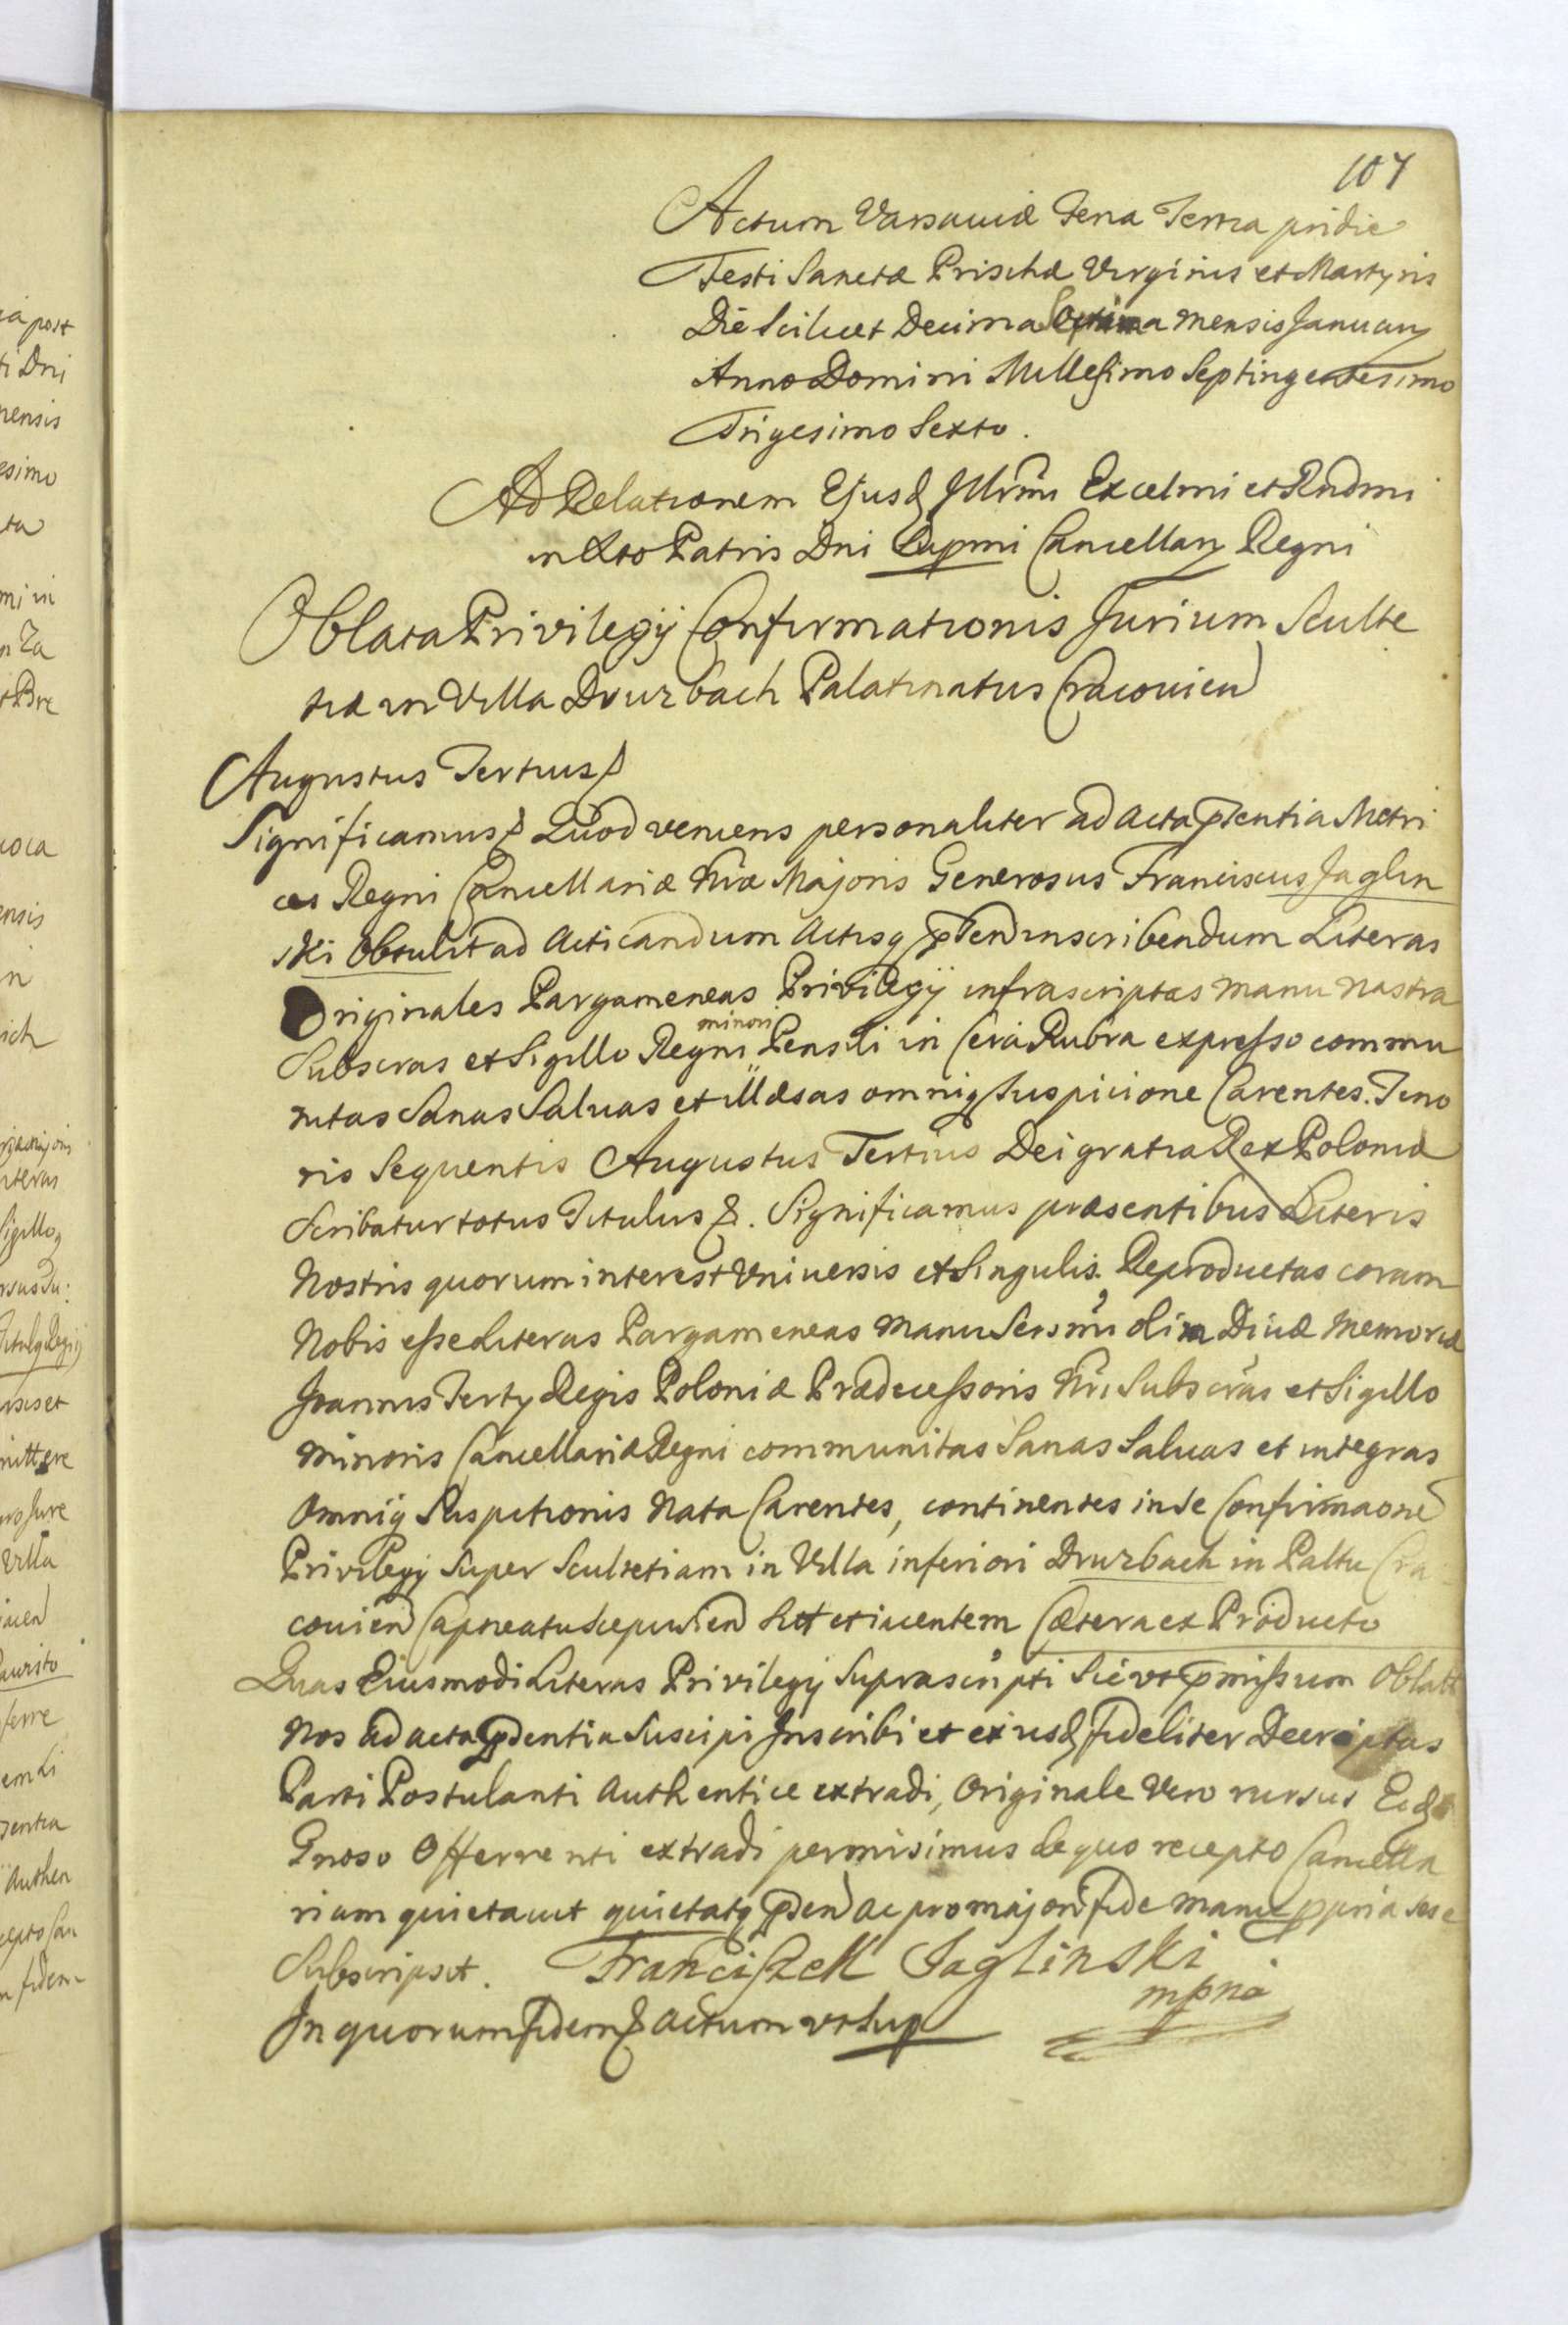 107
Actum Varsaviæ Feria Tertia pridie
Festi Sanctæ Prischæ Virginis et Martyris
Die Scilicet Decima Septima mensis January
Anno Domini Millesimo Septingentesimo
Trigesimo Sexto.
Ad Relationem Ejusd Illrmi Excelmi et Rndmi
in Xto Patris Dni Supmi Cancellary Regni
Oblata Privilegij Confirmationis Jurium Sculte
tiæ in Villa Drurbach Palatinatus Cracovien
Augustus Tertius &
Significamus & Quod veniens personaliter ad Acta pntentia Metri
ces Regni Cancellariæ Nræ Majoris Generosus Franciscus Jaglin
ski Obtulit ad Acticandum Actisq pnten inscribendum Literas
Originales Pargameneas Privilegij infrascriptas manu nostra
Subscras et Sigillo Regni minori Pensili in Cera Rubra expresso commu
nitas Sanas Salvas et illæsas omniq Suspicione Carentes. Teno
ris Sequentis Augustus Tertius Dei gratia Rex Poloniæ
Scribatur totus Titulus &. Significamus præsentibus Literis
Nostris quorum interest Universis et Singulis. Reproductas coram
Nobis esse Literas Pargameneas manu Sersmi olim Divæ Memoriæ
Joannis Terty Regis Poloniæ Prædecessoris Nri Subscras et Sigillo
minoris Cancellariæ Regni communitas Sanas Salvas et integras
Omniq Suspitionis Nota Carentes, continentes in se Confirmaone
Privilegij Super Scultetiam in Villa inferiori Drurbach in Paltu Cra
covien Capneatu Scepusien
Cætera ex Producto
Quas Eiusmodi Literas Privilegij Suprascripti Sic vt pmissum Oblatt
Nos ad acta pdsentia Suscipi Inscribi et ex iisd fideliter Descriptas
Parti Postulanti Authentice extradi, Originale Vero rursus Eid
Gnoso Offerenti extradi permisimus de quo recepto Cancella
riam quietavit quietatq pden ac pro majori fide manu ppria sese
Subscripsit. Franciszek Jaglinski
mpria
In quorum fidem & Actum vt Sup